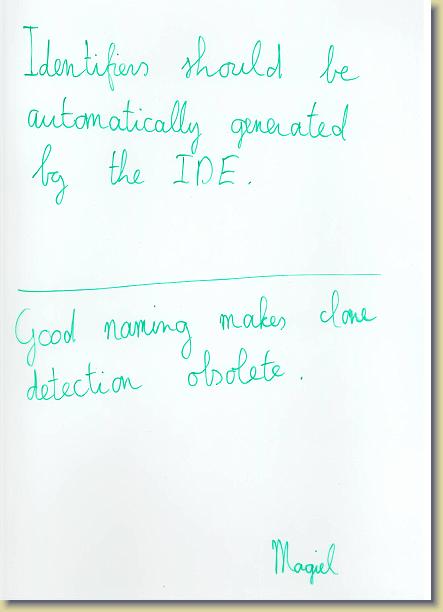 Identifiers should be
automatically generated
by the IDE.
Good naming makes clone
detection obsolete.
Magiel